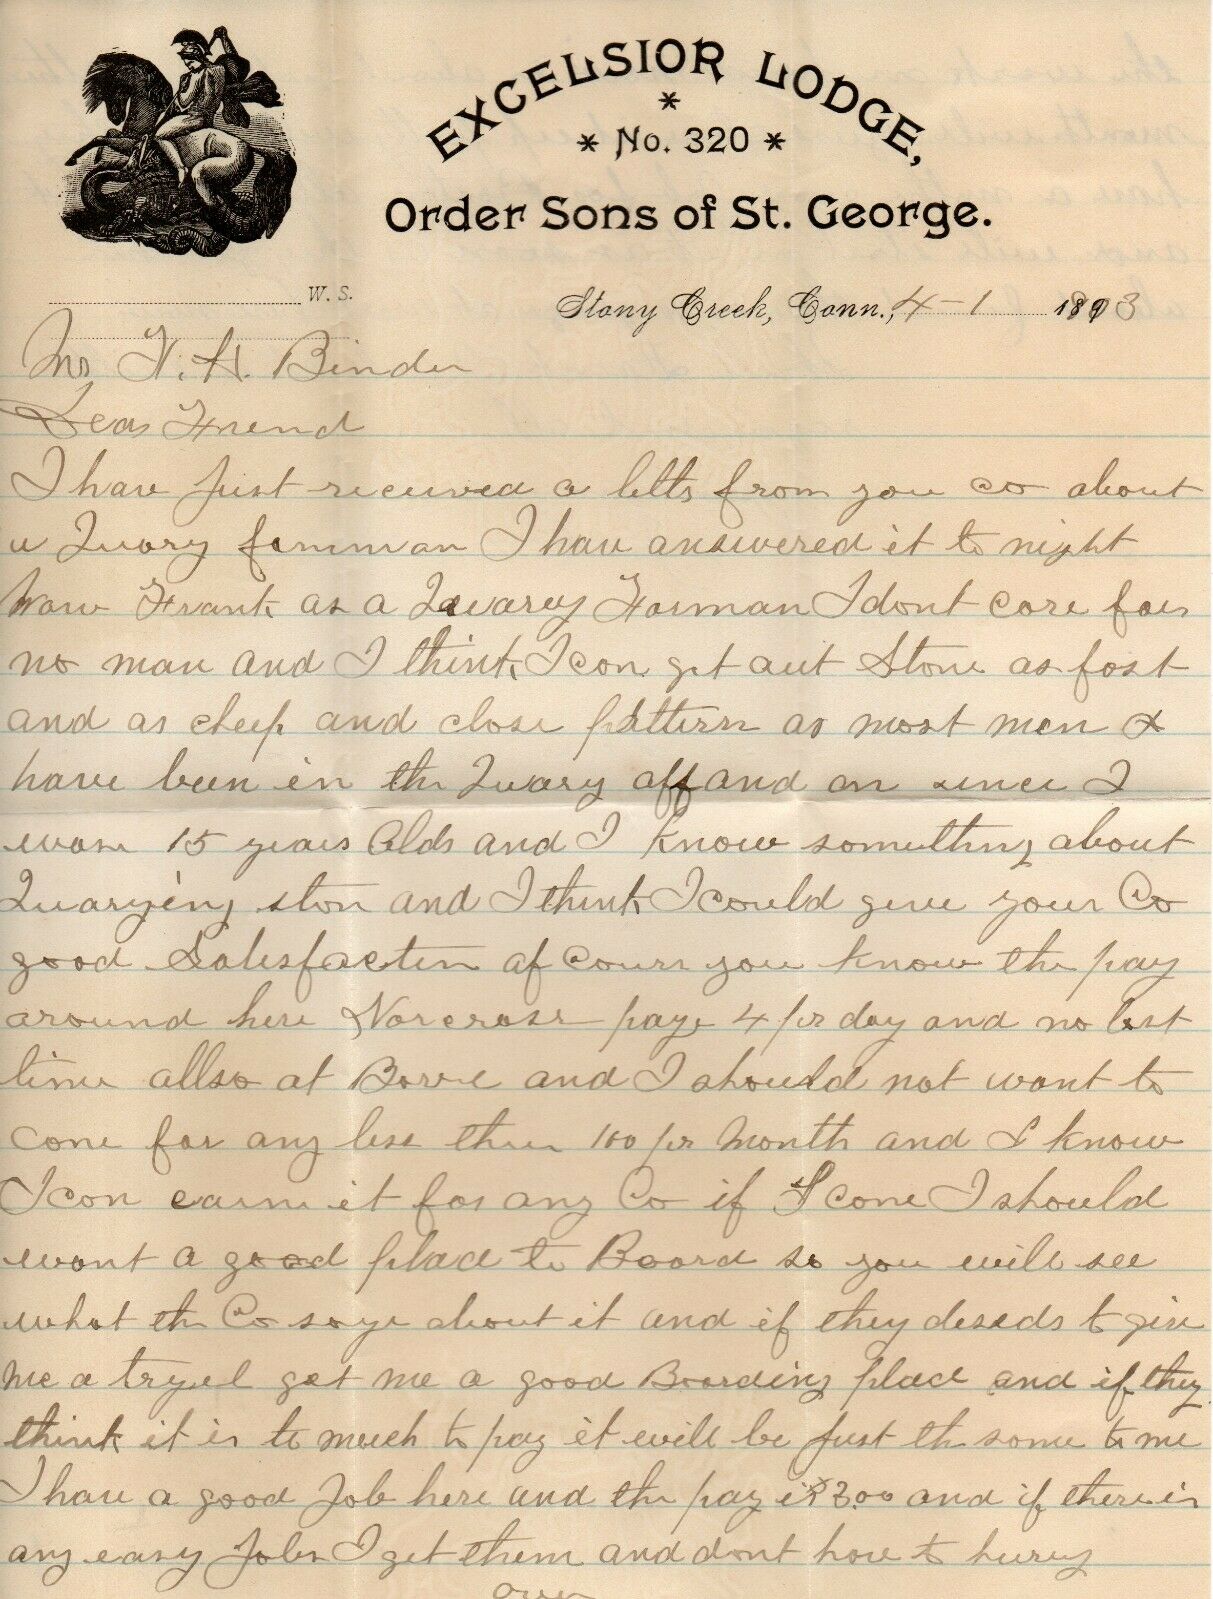 EXCELSIOR LODGE,
* No. 320 *
Order Sons of St. George.
W. S.
Stony Creek, Conn., 4-1 1893
Mr F. H. Binder
Dear Friend
I have Just received a letter from you co about
a Quary forman I have answered it to night
Now Frank as a Quarey Forman I dont care for
no man and I think I can get out Stone as fast
and as cheep and close pattern as most men I
have been in the Quary off and on since I
was 15 years Olds and I know something about
Quarying ston and I think I could give your Co
good Satesfactin of cours you know the pay
around here Norcross pays 4 pr day and no lost
time allso at Barre and I should not want to
come for any less then 100 pr Month and I know
I can earn it for any Co if I come I should
want a good place to Board so you will see
what the Co says about it and if they desids to give
me a tryel get me a good Boarding place and if they
think it is to much to pay it will be Just the same to me
I have a good Job here and the pay is 3.00 and if there is
any easy Jobs I get them and dont have to hurey
over